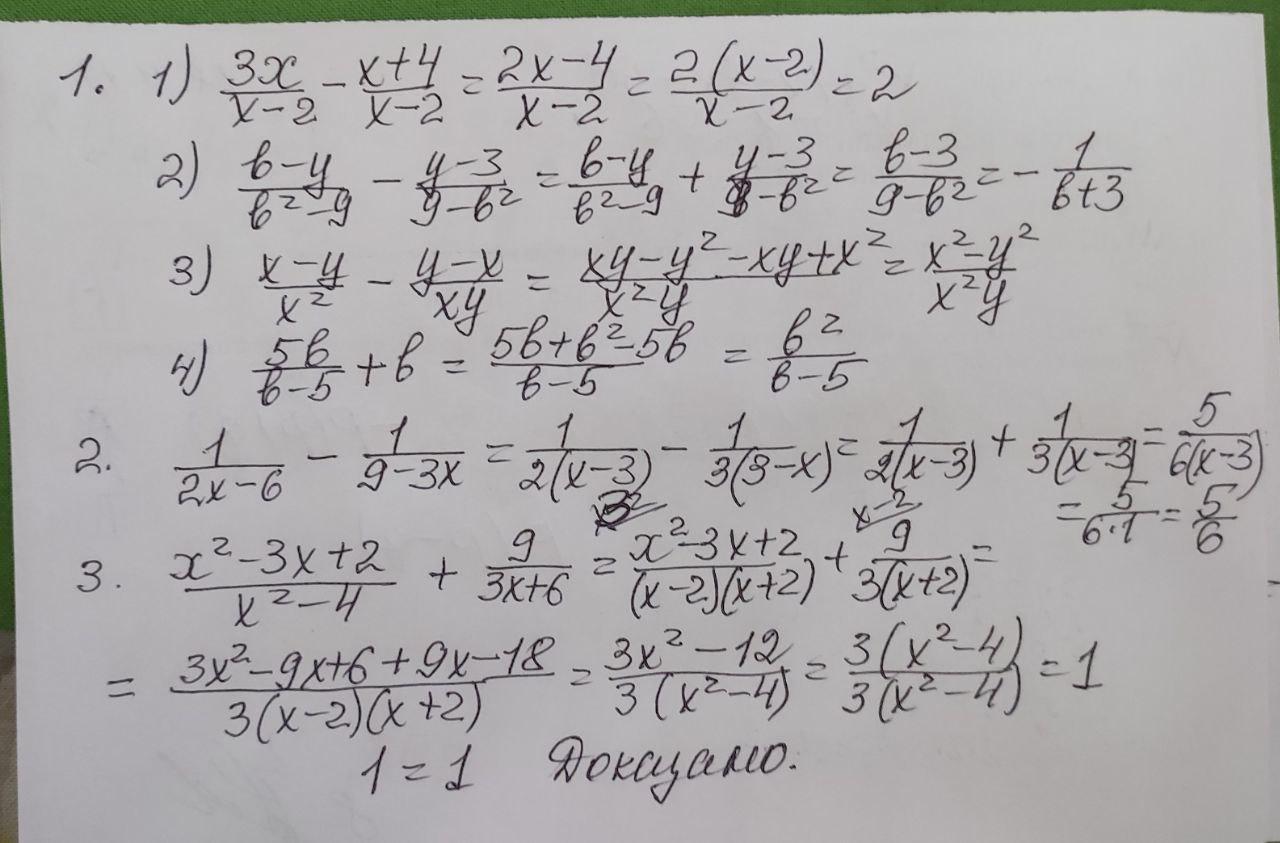 1. 1) 3x/(x-2) - (x+4)/(x-2) = (2x-4)/(x-2) = 2(x-2)/(x-2) = 2
2) (в-у)/(в²-9) - (у-3)/(9-в²) = (в-у)/(в²-9) + (у-3)/(9-в²) = (в-3)/(9-в²) = - 1/(в+3)
3) (x-y)/x² - (y-x)/xy = (xy-y²-xy+x²)/x²y = (x²-y²)/x²y
4) 5в/(в-5) + в = (5в+в²-5в)/(в-5) = в²/(в-5)
2. 1/(2x-6) - 1/(9-3x) = 1/2(x-3) - 1/3(3-x) = 1/2(x-3) + 1/3(x-3) = 5/6(x-3)
= 5/6·1 = 5/6
3. (x²-3x+2)/(x²-4) + 9/(3x+6) = (x²-3x+2)/(x-2)(x+2) + x-2/ 9/3(x+2) =
= (3x²-9x+6+9x-18)/3(x-2)(x+2) = (3x²-12)/3(x²-4) = 3(x²-4)/3(x²-4) = 1
1 = 1 Доказамо.